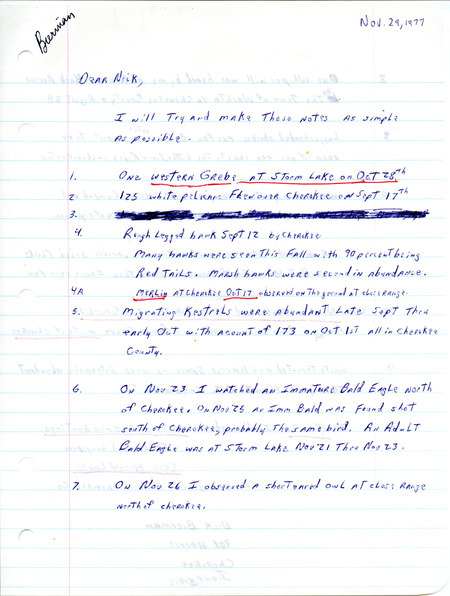 Nov. 29, 1977
Bierman
Dear Nick,
I will Try and make These notes as simple
as possible.
1. One western Grebe at Storm Lake on Oct 28th
2 125 white pelicans Flew over Cherokee on Sept 17th
3.
4. Rough Legged hawk Sept 12 by Cherokee
Many hawks were seen This Fall with 90 percent being
Red Tails. Marsh hawks were second in abundance.
4A Merlin at Cherokee Oct 17 observed on The ground at close range.
5. Migrating Kestrels were abundant late Sept Thru
early Oct with acount of 173 on Oct 1st all in Cherokee
County.
6. On Nov 23 I watched an Immature Bald Eagle north
of Cherokee. On Nov 25 an Imm Bald was found shot
south of Cherokee, probably The same bird. An Adult
Bald Eagle was at Storm Lake Nov 21 Thru Nov 23.
7. On Nov 26 I observed a short eared owl at close range
north of cherokee.